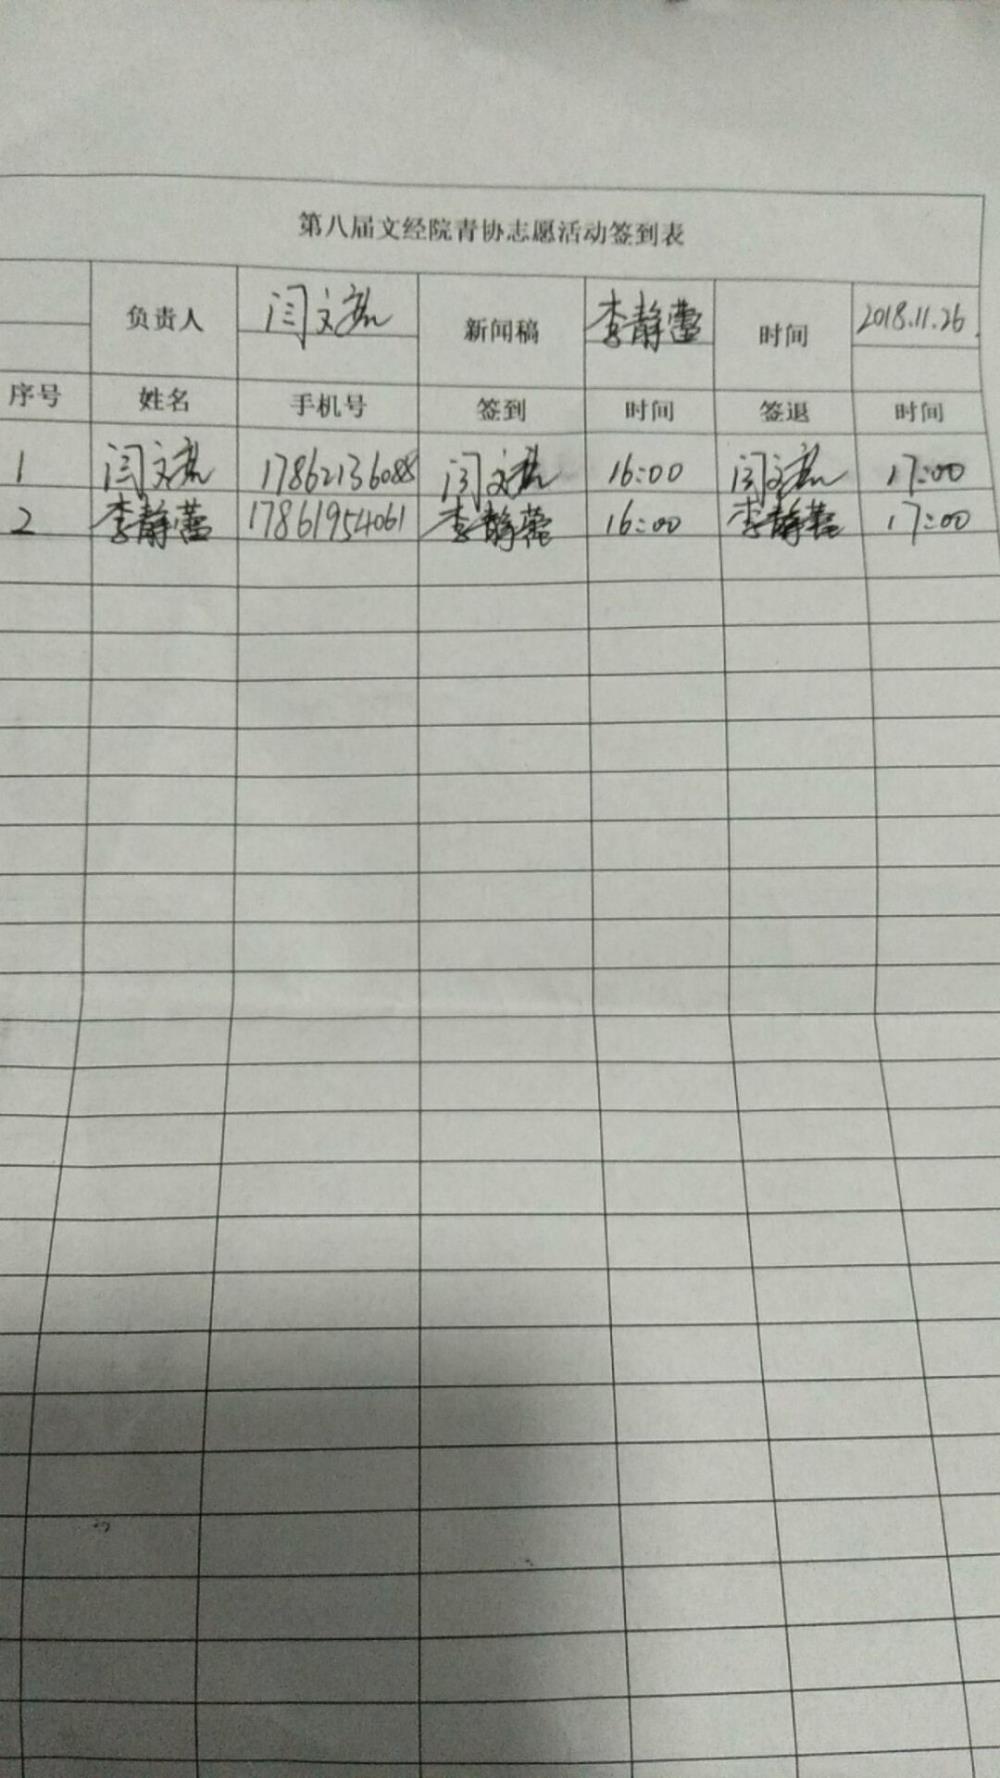 第八届文经院青协志愿活动签到表
负责人 闫文 新闻稿 李静蕾 时间 2018.11.26
序号 姓名 手机号 签到 时间 签退 时间
1 闫文 17862136088 闫文 16:00 闫文 17:00
2 李静蕾 17861954061 李静蕾 16:00 李静蕾 17:00